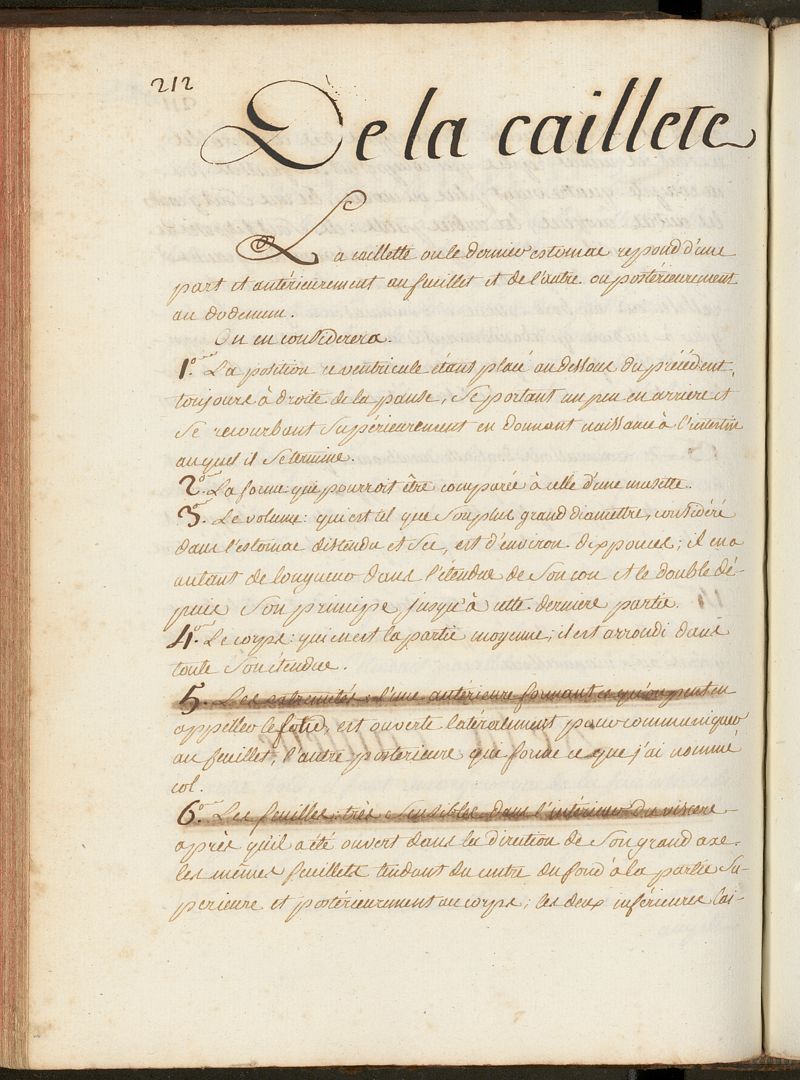 212
De la caillete
La caillette ou le dernier estomac repond d'une
part et antérieurement au feuillet et de l'autre ou postérieurement
au dodenum.
On en considerera.
1.° La position ce ventricule étant placé au dessous du précédent,
toujours à droite de la panse, se portant un peu en arriere et
se recourbant supérieurement en donnant naissance à l'intestin
auquel il se termine.
2.° La forme que pourroit être comparée à celle d'une musette.
3.° Le volume: qui est tel que son plus grand diamettre, considéré
dans l'estomac distendu et sec, est d'environ dix pouces; il en a
autant de longueur dans l'étendue de son cou et le double dé-
puis son principe jusqu'à cette derniere partie.
4.° Le corps: qui en est la partie moyenne; il est arrondi dans
toute son étendue.
5.° Les extremités: l'une antérieure formant ce qu'on peut en
appeller le fond, est ouverte latéralement pour communiquer
au feuillet, l'autre posterieure que forme ce que j'ai nommé
col.
6.° Les feuilles: très sensibles dans l'intérieur du viscere
après qu'il a été ouvert dans la direction de son grand axe.
les mêmes feuillets tendant du centre du fond à la partie su-
perieure et postérieurement au corps; les deux inférieures lai-